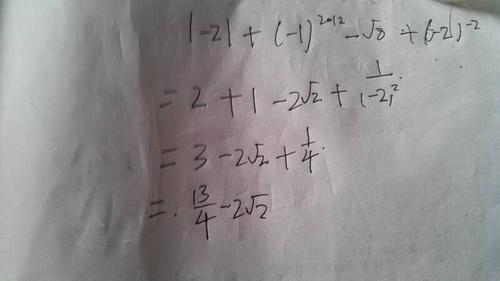 |-2| + (-1)^2012 - √8 + (-2)^-2
= 2 + 1 - 2√2 + 1/(-2)^2
= 3 - 2√2 + 1/4
= 13/4 - 2√2